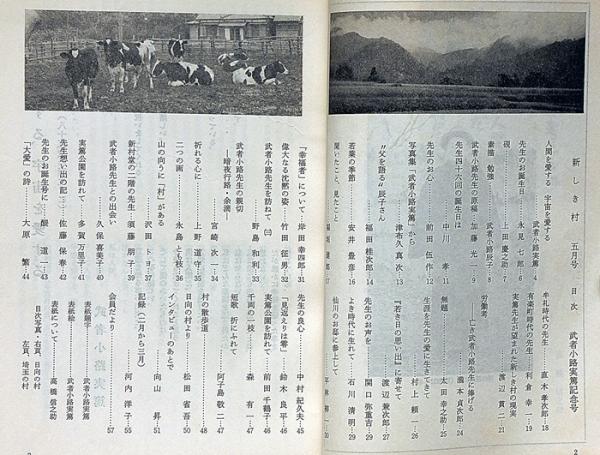 新しき村 五月号 目次 武者小路実篤記念号
人間を愛する 宇宙を愛する
武者小路実篤 4
先生のお誕生日 永見七郎 6
硯 上田慶之助 7
素描 勉強 武者小路辰子 8
武者小路先生の原稿 加藤光一 9
先生四十六回の誕生日は
中川孝 11
先生のお心 前田伍作 12
写真集「武者小路実篤」から
津布久真次 13
"父を語る"辰子さん
福田桂次郎 14
若葉の季節 安井豊彦 16
聞いたこと、見たこと
17
牟礼時代の先生 直木孝次郎 18
有楽町時代の先生 利倉幸一 19
実篤先生が望まれた新しき村の現実
渡辺貫二 21
労働考
―亡き武者小路先生に捧げる
瀧本貞次郎 24
無題 太田幸之助 25
生涯を先生の愛に生きてきて
村上頼一 26
『若き日の思い出』に寄せて
渡辺兼次郎 27
先生のお声を 関口弥重吉 29
よき時代に生れて 石川清明 29
仙川のお邸に参上して
30
「幸福者」について 岸田幸四郎 31
偉大なる沈黙の姿 竹田征男 32
武者小路先生を訪ねて㈡
野島和利 33
武者小路先生の親切
―暗夜行路・余滴―
宮崎次一 34
祈れる心に 上野道守 35
二つの画 永島とも枝 36
山の向うに「村」がある
沢田トヨ 37
新村堂の二階の先生 須藤朋子 39
武者小路先生との出会い
久保喜美子 40
実篤公園を訪れて 多賀万里子 41
先生想い出の記 佐藤保春 42
先生のお誕生日に 醍道一 43
「大愛」の詩 大原繁 44
先生の良心 中村紀久夫 45
「見返えりは零」 鈴木良平 46
実篤公園を訪れて 前田千鶴子 46
千両の一枝 森有一 47
短歌 折にふれて
阿子島敬二 47
村の散歩道 48
日向の村より 松田省吾 50
インタビューのあとで
向山昇 51
記録(二月から三月)
河内洋子 55
会員だより 57
表紙題字 武者小路実篤
表紙絵 武者小路実篤
表紙について 高橋信之助
目次写真・右頁、日向の村
左頁、埼玉の村
2
3